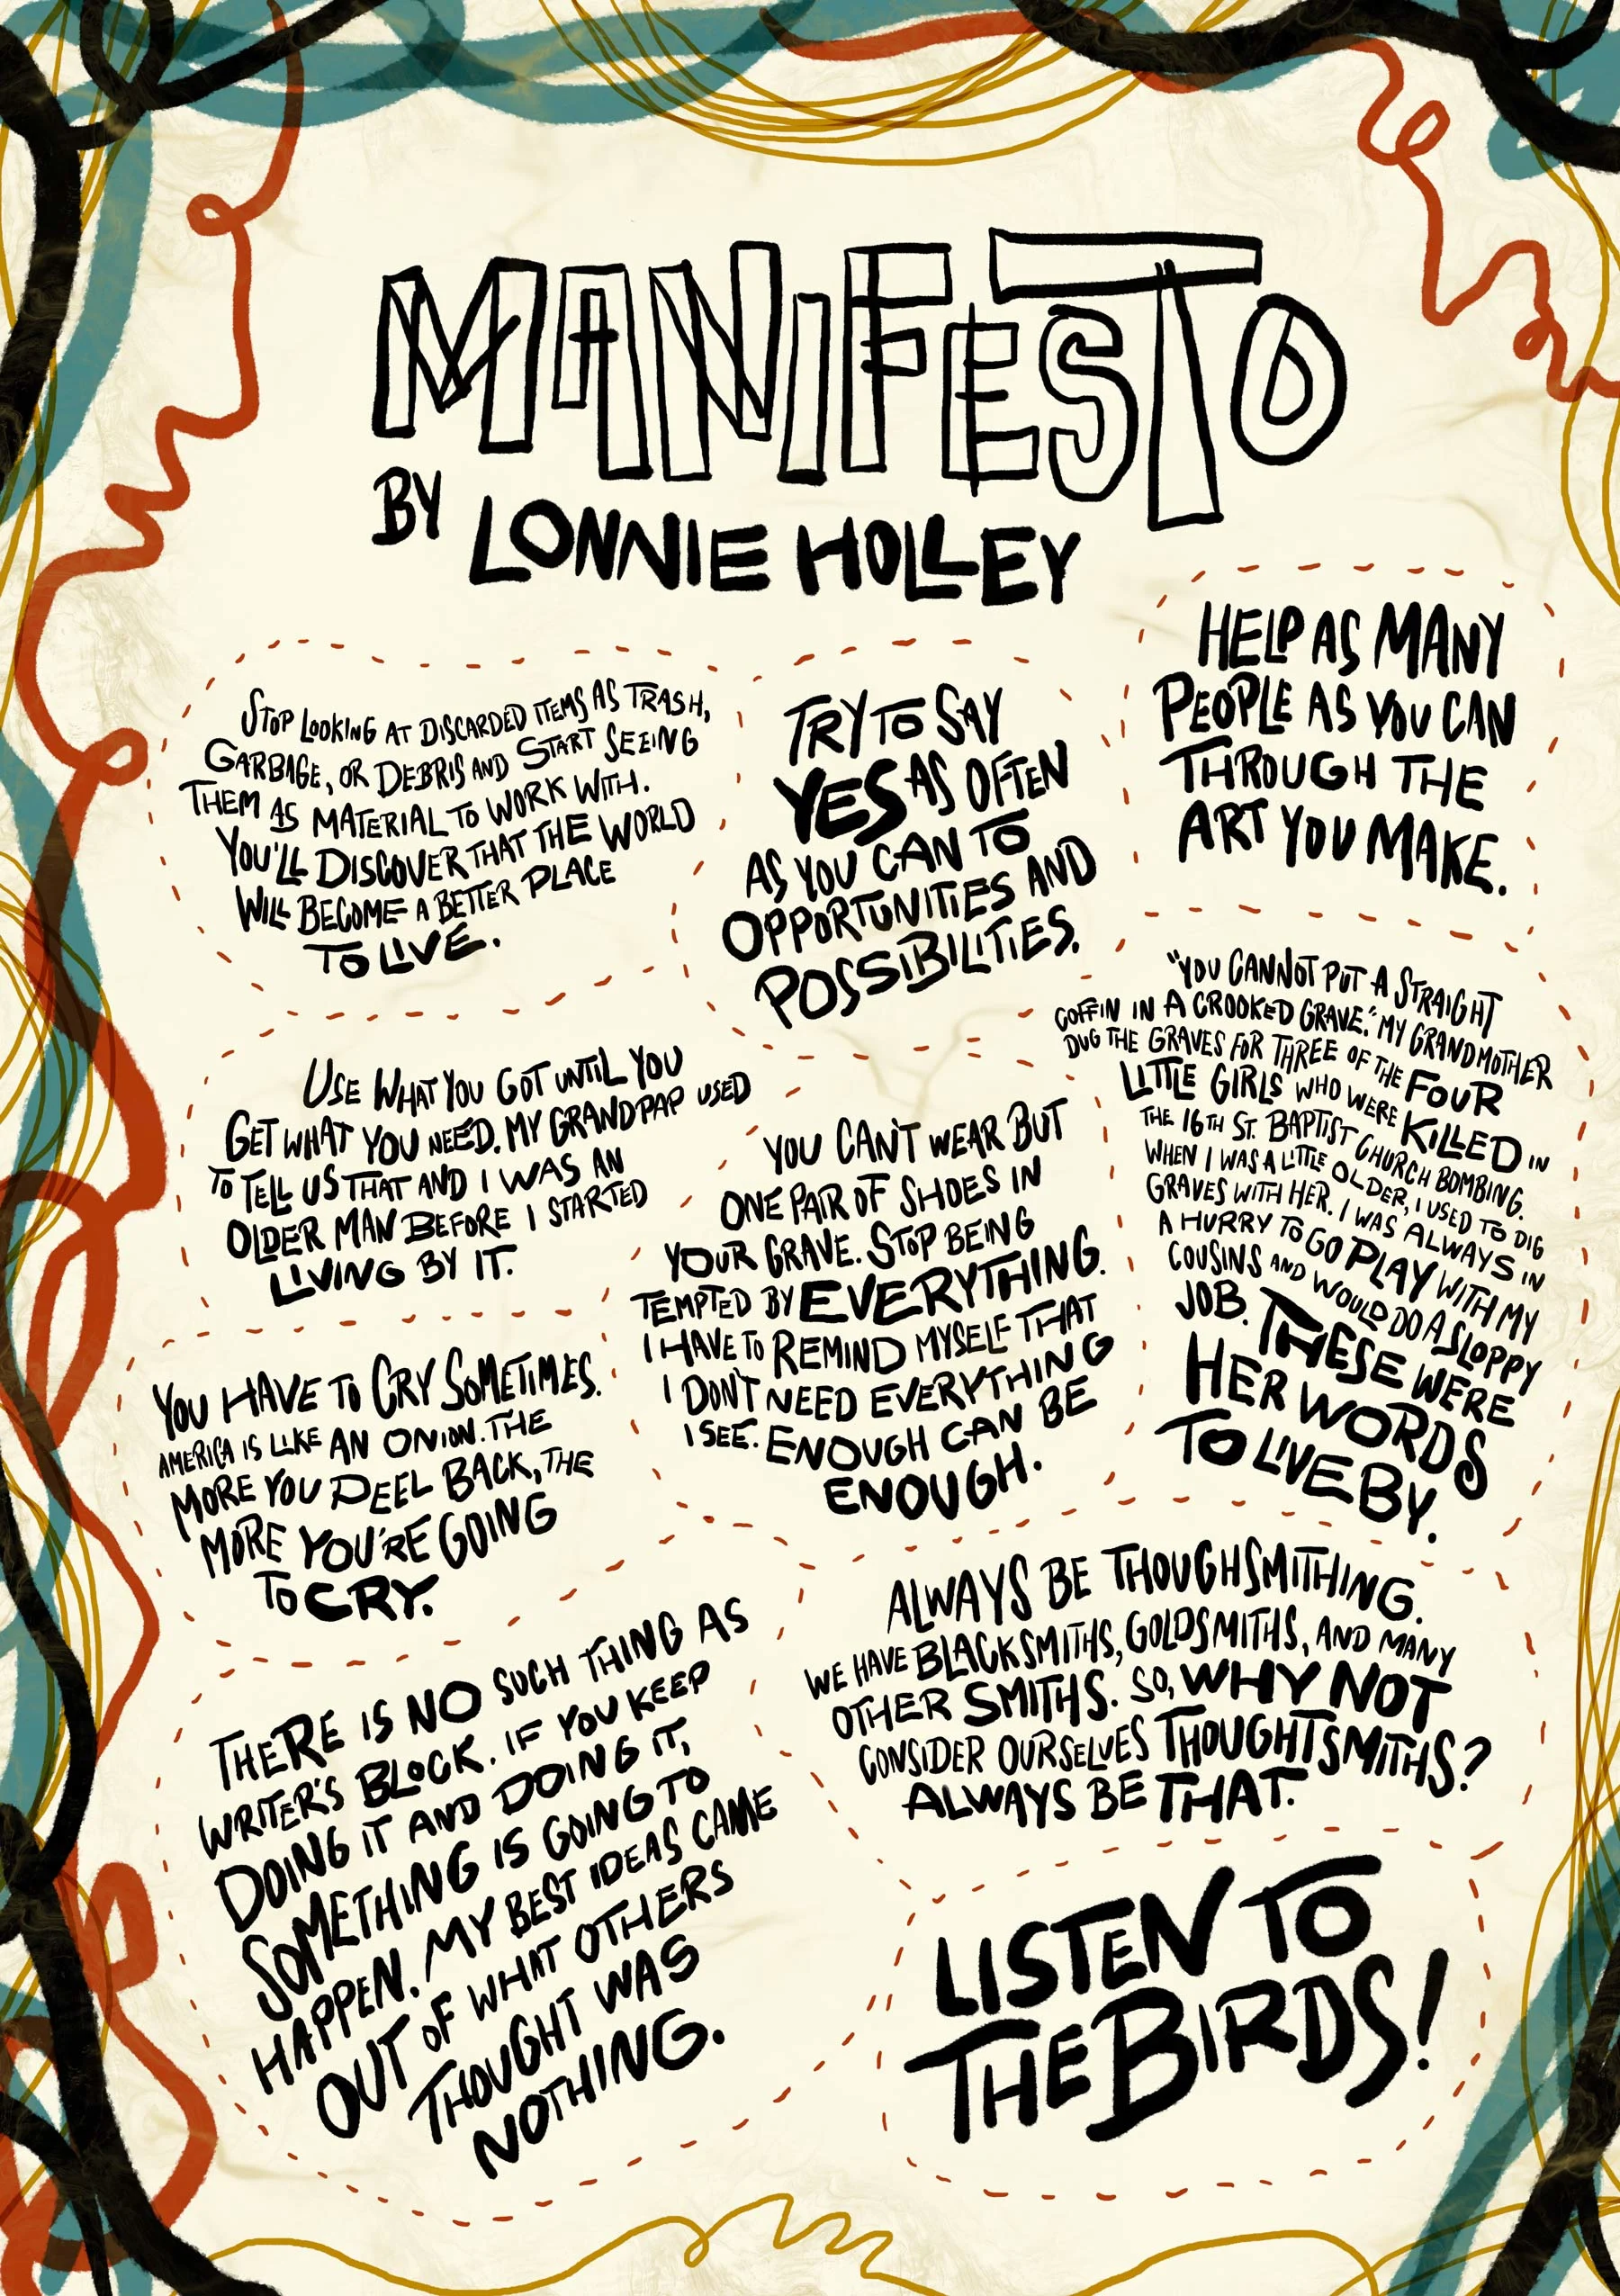 MANIFESTO
BY LONNIE HOLLEY
STOP LOOKING AT DISCARDED ITEMS AS TRASH,
GARBAGE, OR DEBRIS AND START SEEING
THEM AS MATERIAL TO WORK WITH.
YOU'LL DISCOVER THAT THE WORLD
WILL BECOME A BETTER PLACE
TO LIVE.
TRY TO SAY
YES AS OFTEN
AS YOU CAN TO
OPPORTUNITIES AND
POSSIBILITIES.
HELP AS MANY
PEOPLE AS YOU CAN
THROUGH THE
ART YOU MAKE.
USE WHAT YOU GOT UNTIL YOU
GET WHAT YOU NEED. MY GRANDPAP USED
TO TELL US THAT AND I WAS AN
OLDER MAN BEFORE I STARTED
LIVING BY IT.
YOU CAN'T WEAR BUT
ONE PAIR OF SHOES IN
YOUR GRAVE. STOP BEING
TEMPTED BY EVERYTHING.
I HAVE TO REMIND MYSELF THAT
I DON'T NEED EVERYTHING
I SEE. ENOUGH CAN BE
ENOUGH.
"YOU CANNOT PUT A STRAIGHT
COFFIN IN A CROOKED GRAVE." MY GRANDMOTHER
DUG THE GRAVES FOR THREE OF THE FOUR
LITTLE GIRLS WHO WERE KILLED IN
THE 16TH ST. BAPTIST CHURCH BOMBING.
WHEN I WAS A LITTLE OLDER, I USED TO DIG
GRAVES WITH HER. I WAS ALWAYS IN
A HURRY TO GO PLAY WITH MY
COUSINS AND WOULD DO A SLOPPY
JOB. THESE WERE
HER WORDS
TO LIVE BY.
YOU HAVE TO CRY SOMETIMES.
AMERICA IS LIKE AN ONION. THE
MORE YOU PEEL BACK, THE
MORE YOU'RE GOING
TO CRY.
ALWAYS BE THOUGHSMITHING.
WE HAVE BLACKSMITHS, GOLDSMITHS, AND MANY
OTHER SMITHS. SO, WHY NOT
CONSIDER OURSELVES THOUGHTSMITHS?
ALWAYS BE THAT.
THERE IS NO SUCH THING AS
WRITER'S BLOCK. IF YOU KEEP
DOING IT AND DOING IT,
SOMETHING IS GOING TO
HAPPEN. MY BEST IDEAS CAME
OUT OF WHAT OTHERS
THOUGHT WAS
NOTHING.
LISTEN TO
THE BIRDS!